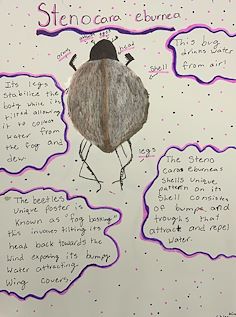 Stenocara eburnea
head
shell
legs
This bug
drinks water
from air!
Its legs
stabilize the
body while it's
tilted allowing
it to collect
water from
the fog and
dew.
The Steno
cara eburneas
shells unique
pattern on its
Shell consists
of bumps and
troughs that
attract and repel
water.
The beetles
Unique poster is
Known as "fog basking"
this involves tilting its
head back towards the
wind exposing its bumpy
water attracting
wing covers.